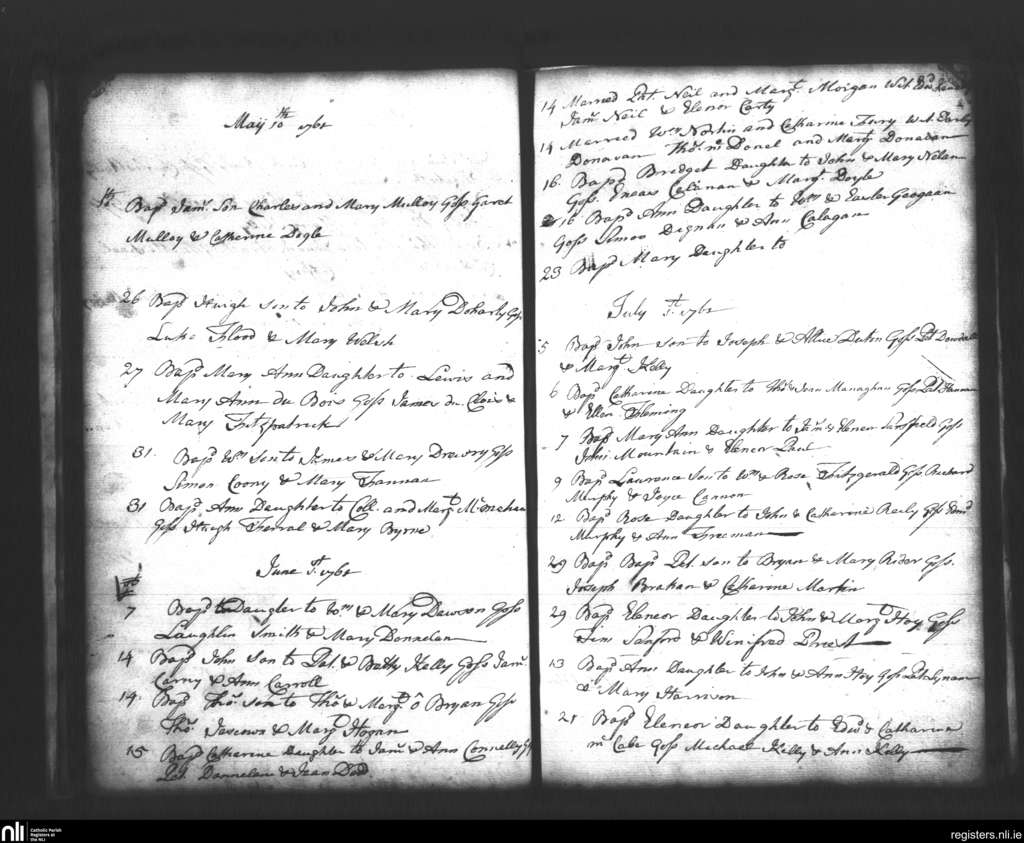 May 10th 1761
10th Bapd Jams. Son Charles and Mary Mulloy Goss Garet
Mulloy & Catherine Doyle
26 Bapd Hugh son to John & Mary Doharty Gos
Luke Flood & Mary Welsh
27 Bapd Mary Ann Daughter to Lewis and
Mary Ann du Bois Goss James du &
Mary Fitzpatrick
31. Bapd Wm Son to James & Mary Drewry Goss
Simon Coony & Mary Fannan
31 Bapd. Ann Daughter to Coll. and Margt
Goss Hugh Ferral & Mary Byrne
June 1761
7 Bapd Daugter to Wm & Mary Dawson Goss
Laughlin Smith & Mary Donnelan
14 Bapd John Son to Pat. & Betty Kelly Goss Jams.
Carny & Ann Carroll
14. Bapd Thos son to Thos & Margt O Bryan Goss
Thos. & Margt Hogan
15 Bapd Catherine Daughter to Jams & Ann Connelly Gss
Pat. Donnelan & Jean Dod
14 Married Pat. Neil and Margt. Morgan Wit
Jams Neil & Elenor Carty
14 Married Wm Nortin and Catharine Fury Wit
Donovan Thos. mc Donel and Margt Donavan
16. Bapd Bridget Daughter to John & Mary Nelan
Goss. Eneas & Margt. Doyle
16 Bapd Ann Daughter to Wm & Geogan
Goss Simon Dignan & Ann Calagan
23 Bapd Mary Daughter to
July 1761
5 Bapd John son to Joseph & Goss Pat
& Margt Kelly
6 Bapd Catharine Daughter to Thos & Jean Managhan Goss Pat Hannan
& Ellen Fleming
7 Bapd Mary Ann Daughter to Jams & Elenor Sarsfield Goss
John Mountain & Elenor
9 Bapd Laurence son to Wm & Rose Fitzgerald Goss Richard
Murphy & Joyce Cannon
12 Bapd Rose Daughter to John & Catharine Reely Goss Edmd
Murphy & Ann Freeman
29 Bapd Bapd Pat. son to Bryan & Mary Rider Goss.
Joseph Brahan & Catharine Martin
29 Bapd Eleneor Daughter to John & Margt Hoy Goss
Jim Sanford & Winifred Priest
13 Bapd Ann Daughter to John & Ann Hoy Goss Pat Lynam
& Mary Harrison
21 Bapd Eleneor Daughter to Edwd & Catharine
mc Cabe Goss Michael Kelly & Ann Kelly
nli
Catholic Parish
Registers at
the NLI
registers.nli.ie